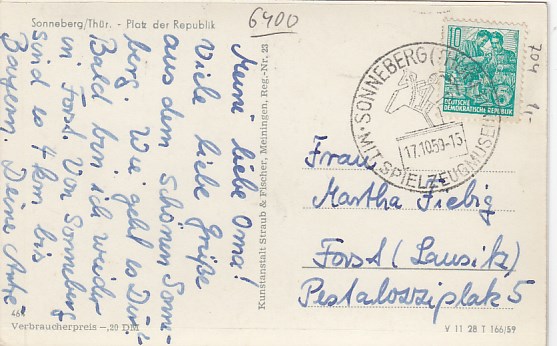 Sonneberg/Thür. - Platz der Republik
6400
Meine liebe Oma!
Viele liebe Grüße
aus dem schönen Sonne-
berg. Wie geht es Dir?
Bald bin ich wieder
in Forst. Von Sonneberg
sind es 4 km bis
Bayern. Deine
Kunstanstalt Straub & Fischer, Meiningen, Reg.-Nr. 23
46
Verbraucherpreis -,20 DM
10
DEUTSCHE
DEMOKRATISCHE REPUBLIK
704 1,-
SONNEBERG
17.10.59-15
MIT SPIELZEUGMUSEUM
Frau
Martha Fiebig
Forst (Lausitz)
Pestalozziplatz 5
V 11 28 T 166/59